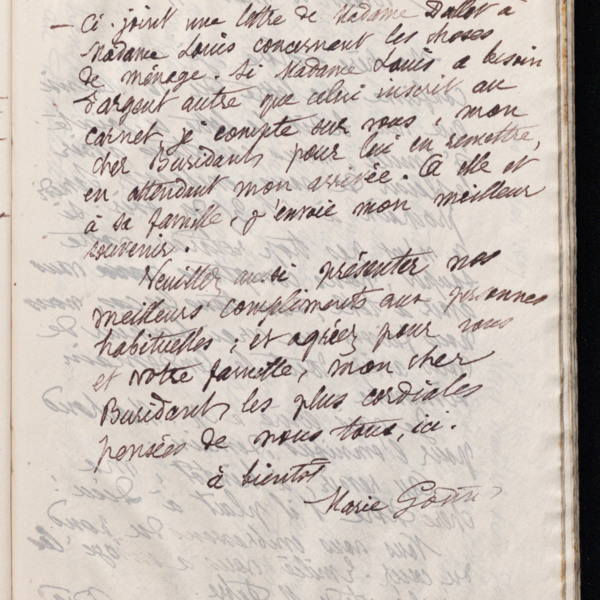 — Ci-joint une lettre de Madame Dallot à
Madame Louis concernant les choses
de ménage. Si Madame Louis a besoin
d'argent autre que celui inscrit au
carnet, je compte sur vous, mon
cher Buridant, pour lui en remettre,
en attendant mon arrivée. A elle et
à sa famille, j'envoie mon meilleur
souvenir.
Veuillez aussi présenter nos
meilleurs compliments aux personnes
habituelles ; et agréez pour vous
et votre famille, mon cher
Buridant, les plus cordiales
pensées de nous tous, ici.
à bientôt
Marie